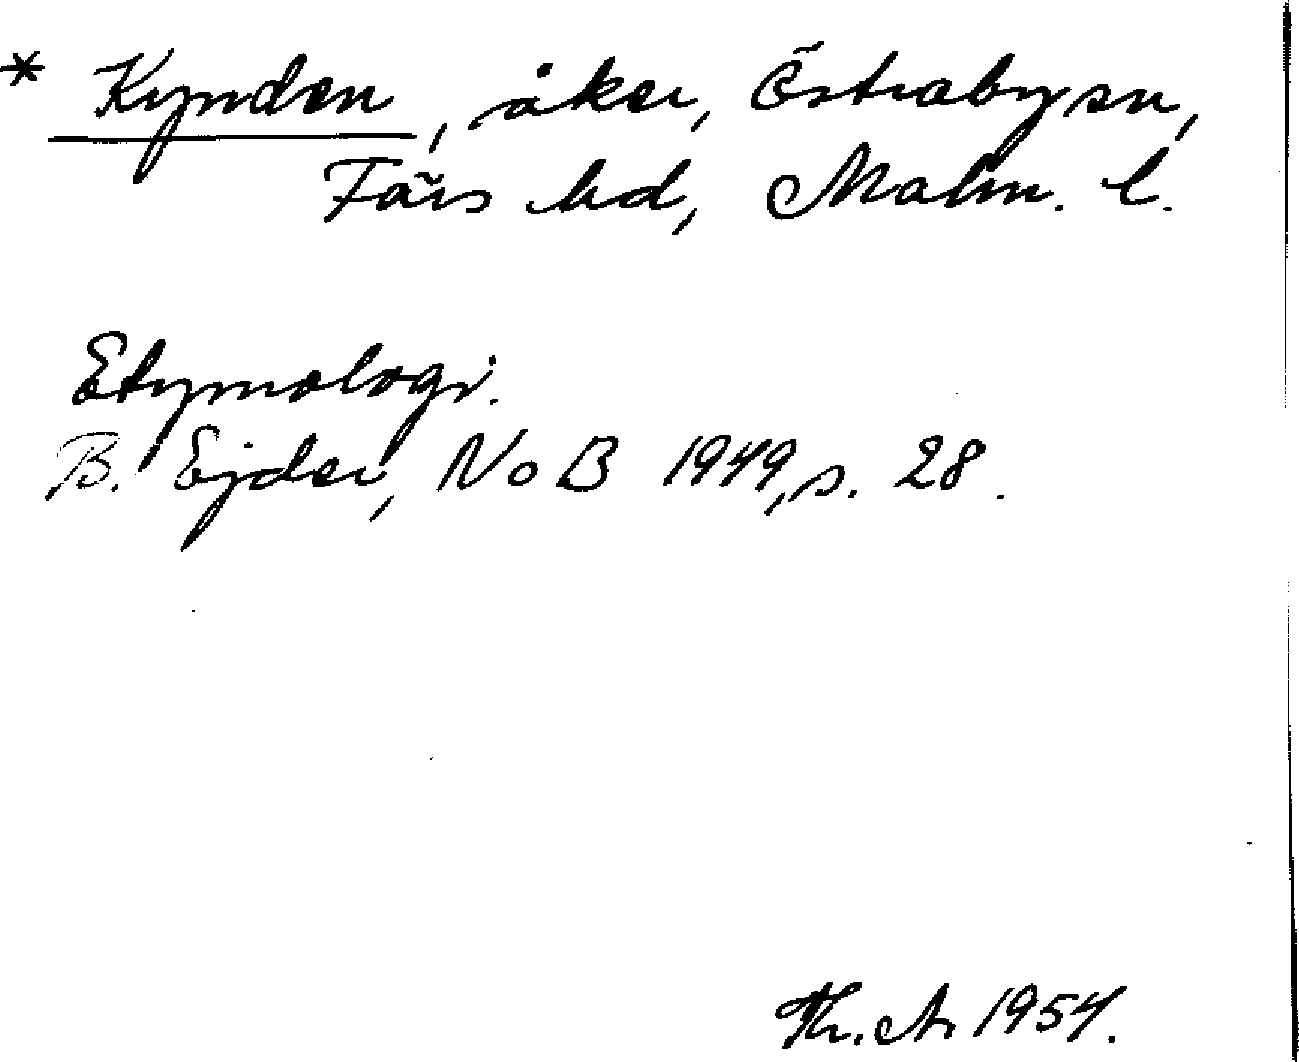 * Kynden, åker, Östraby sn,
Färs hd, Malm. l.
Etymologi.
B. Ejder, NoB 1949, s. 28.
Th. A. 1954.